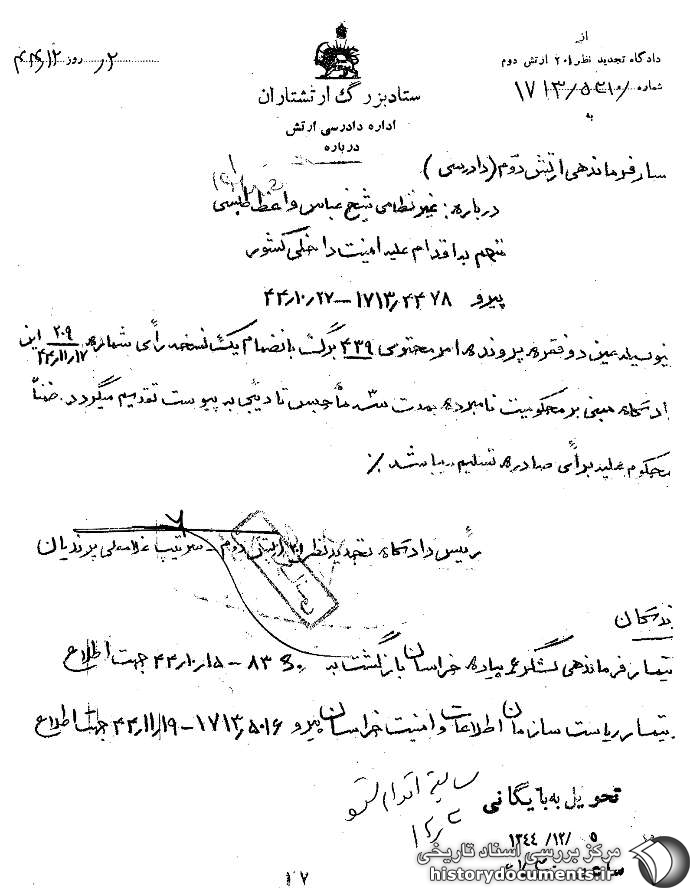 از
دادگاه تجدید نظر ۲۰۱ ارتش دوم
شماره ۱۷۱۳/۵۲۱۰/
به
ستاد بزرگ ارتشتاران
اداره دادرسی ارتش
درباره
روز
تیمسار فرماندهی ارتش دوم (دادرسی)
درباره: غیر نظامی شیخ عباس واعظ طبسی
متهم به اقدام علیه امنیت داخلی کشور
پیرو ۱۷۱۳٫۴۴۷۸ – ۴۴٫۱۰٫۲۷
بدین وسیله عین دو فقره پرونده امر محتوی ۴۳۹ برگ بانضمام یک نسخه رأی شماره ۲۰۹ ۴۴٫۱۱٫۱۷ این
دادگاه مبنی بر محکومیت نامبرده بمدت سه ماه حبس تأدیبی به پیوست تقدیم میگردد. ضمناً
محکوم علیه برأی صادره تسلیم میباشد ٪
رئیس دادگاه تجدید نظر ۲۰۱ ارتش دوم – سرتیپ غلامعلی پرندیان
گیرندگان
تیمسار فرماندهی لشگر پیاده خراسان بازگشت به ۸۳ – ۴۴٫۱۰٫۱۵ جهت اطلاع
تیمسار ریاست سازمان اطلاعات و امنیت خراسان پیرو ۱۷۱۳٫۵۰۱۶ – ۴۴٫۱۱٫۱۹ جهت اطلاع
تحویل به بایگانی
۵ /۱۲/ ۱۳۴۴
ساعت
۱۷
مرکز بررسی اسناد تاریخی
historydocuments.ir